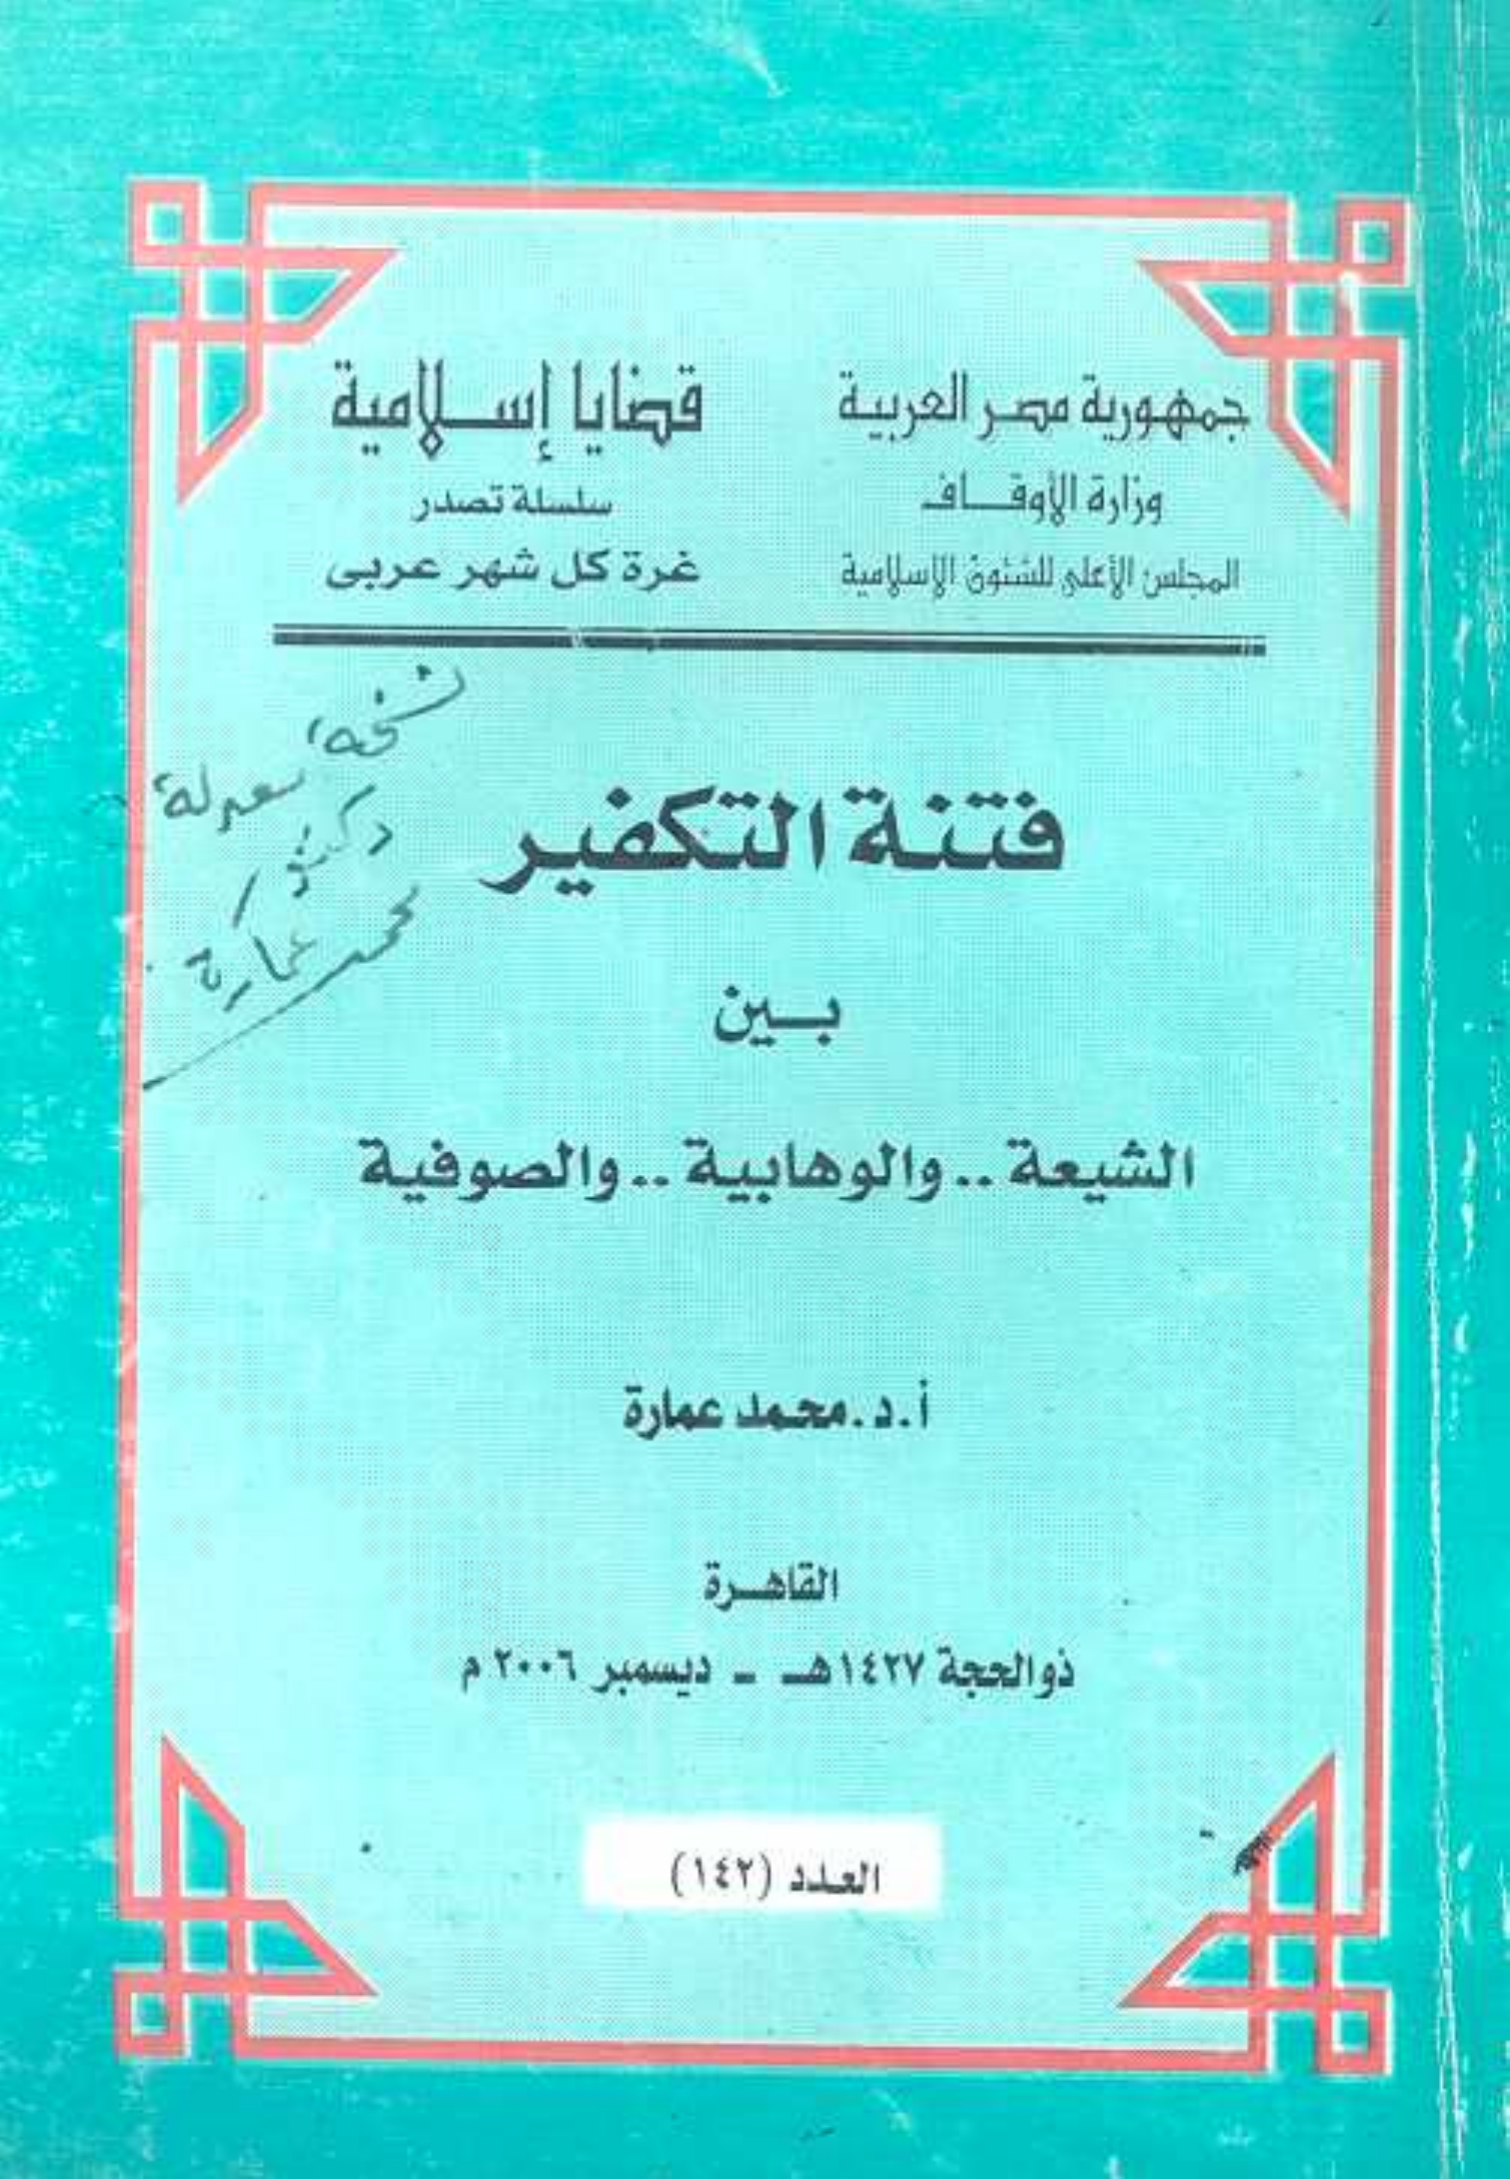 جمهورية مصر العربية
وزارة الأوقاف
المجلس الأعلى للشئون الإسلامية
قضايا إسلامية
سلسلة تصدر
غرة كل شهر عربى
نسخة معدلة
دكتور
محمد عمارة
فتنة التكفير
بين
الشيعة .. والوهابية .. والصوفية
أ.د. محمد عمارة
القاهرة
ذو الحجة ١٤٢٧هـ - ديسمبر ٢٠٠٦ م
العدد (١٤٢)